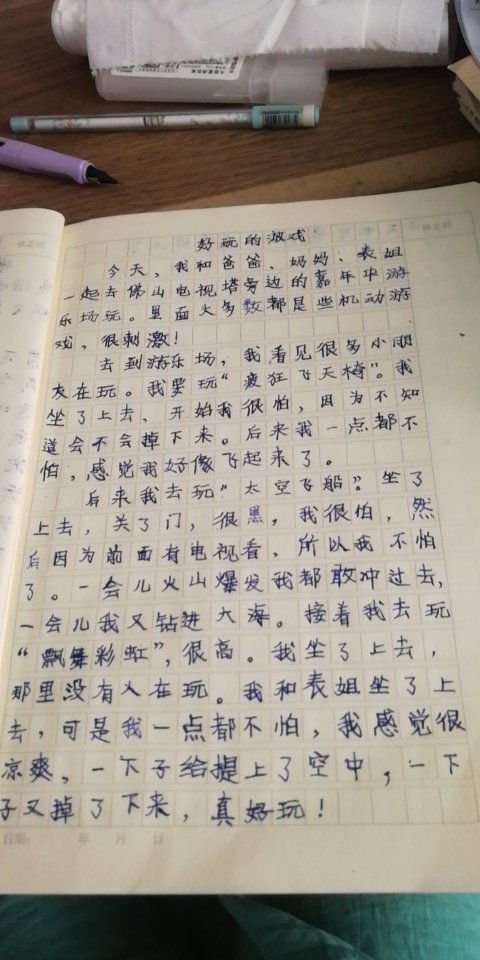 修正栏
好玩的游戏
今天，我和爸爸、妈妈、表姐
一起去佛山电视塔旁边的嘉年华游
乐场玩。里面大多数都是些机动游
戏，很刺激！
去到游乐场，我看见很多小朋
友在玩。我要玩“疯狂飞天椅”。我
坐了上去，开始我很怕，因为不知
道会不会掉下来。后来我一点都不
怕，感觉我好像飞起来了。
后来我去玩“太空飞船”。坐了
上去，关了门，很黑，我很怕，然
后因为前面有电视看，所以我不怕
了。一会儿火山爆发我都敢冲过去，
一会儿我又钻进大海。接着我去玩
“飘舞彩虹”，很高。我坐了上去，
那里没有人在玩。我和表姐坐了上
去，可是我一点都不怕，我感觉很
凉爽，一下子给提上了空中，一下
子又掉了下来，真好玩！
日期： 年 月 日